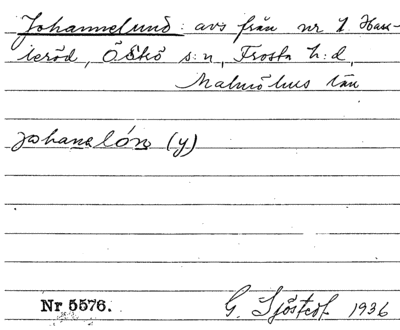 Johannelund: avs från nr 1 Han-
ieröd, Öskö s:n, Frosta h:d,
Malmöhus län
johanelón (y)
Nr 5576. G. Sjöstedt 1936